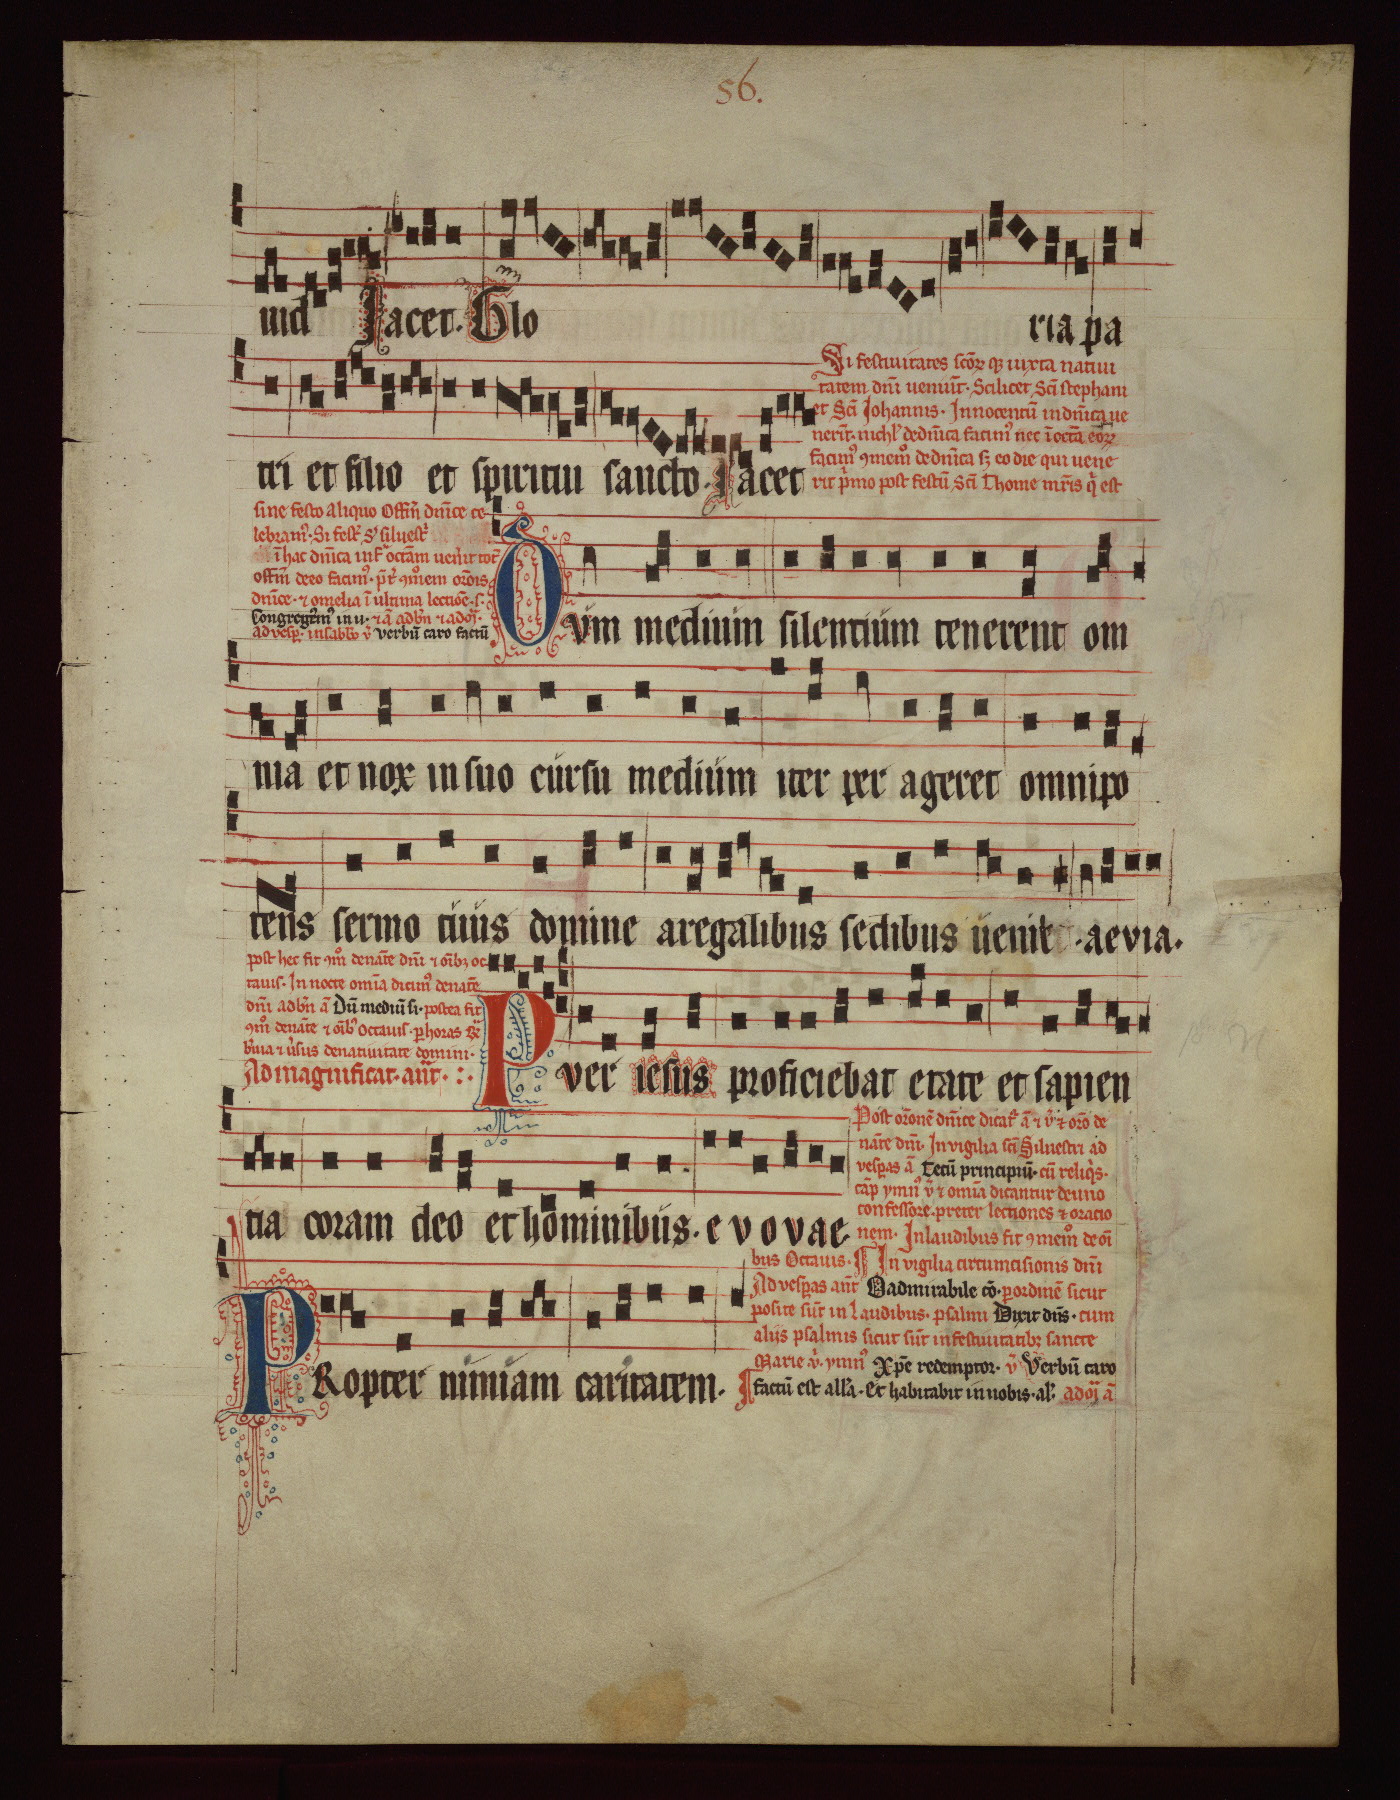 56.
uid Jacet. Glo ria pa
Si festiuitates sc̄oꝝ q̄ iuxta natiui
tatem dn̄i ueniūt. Scilicet Sc̄i stephani
et Sc̄i Johannis. Innocentū in dn̄ica ue
nerīt. nichꝉ de dn̄ica facimꝰ nec ī octā̄ eoꝝ
facimꝰ ꝯmem̄o de dn̄ica sꝫ eo die qui uene
rit p̄mo post festū Sc̄i Thome mr̄is q̄ est
tri et filio et spiritui sancto. Jacet
sine festo aliquo Offīn̄ dn̄ice ce
lebramꝰ. Si fest̄
ī hac dn̄ica inf̄ octām uen̄it tot̄
offīm̄ de eo facimꝰ.
dn̄ice. ⁊ omelia ī ultima lectiōe. s.
Congregem̄ in u.
ad vesp̄. in sabb̄o v̄ verbū caro factū
Dvm medium silentium tenerent om
nia et nox in suo cursu medium iter per ageret omnipo
tens sermo tuus domine a regalibus sedibus uenit .aevia.
post hec fit ꝯm̄ de nat̄e dn̄i ⁊ oībꝫ oc
tauis. In nocte om̄ia dicimꝰ de nat̄e
dn̄i ad b̄n̄ ā Dū mediū si. postea fit
ꝯm̄ de nat̄e ⁊ oīb Octauis. ꝑ horas ℟
b̄uia ⁊ v̄sus de natiuitate domini.
Ad magnificat. an̄t.
Pver iesus proficiebat etate et sapien
Post or̄onē dn̄ice dicat̄ ā ⁊ v̄ ⁊ or̄o de
nat̄e dn̄i. In vigilia sc̄i Siluestri ad
vesp̄as ā Tecū principiū. cū reliq̄s.
cap̄ ymn̄ v̄ ⁊ om̄ia dicantur de uno
confessore. preter lectiones ⁊ oratio
tia coram deo et hominibus. e v o v a e.
nem. In laudibus fit ꝯmem̄o de oī
bus Octauis. In vigilia circumcisionis dn̄i
Ad vesp̄as an̄t O admirabile cō. ꝑ ordinē sicut
posite sūt in laudibus. psalmi Dixit dn̄s. cum
aliis psalmis sicut sūt in festiuitatibꝫ sancte
Marie v̄. ymn̄ Xp̄e redemptor. v̄ Verbū caro
PRopter nimiam caritatem.
factū est all̄a. Et habitabit in nobis. al̄. ad ā